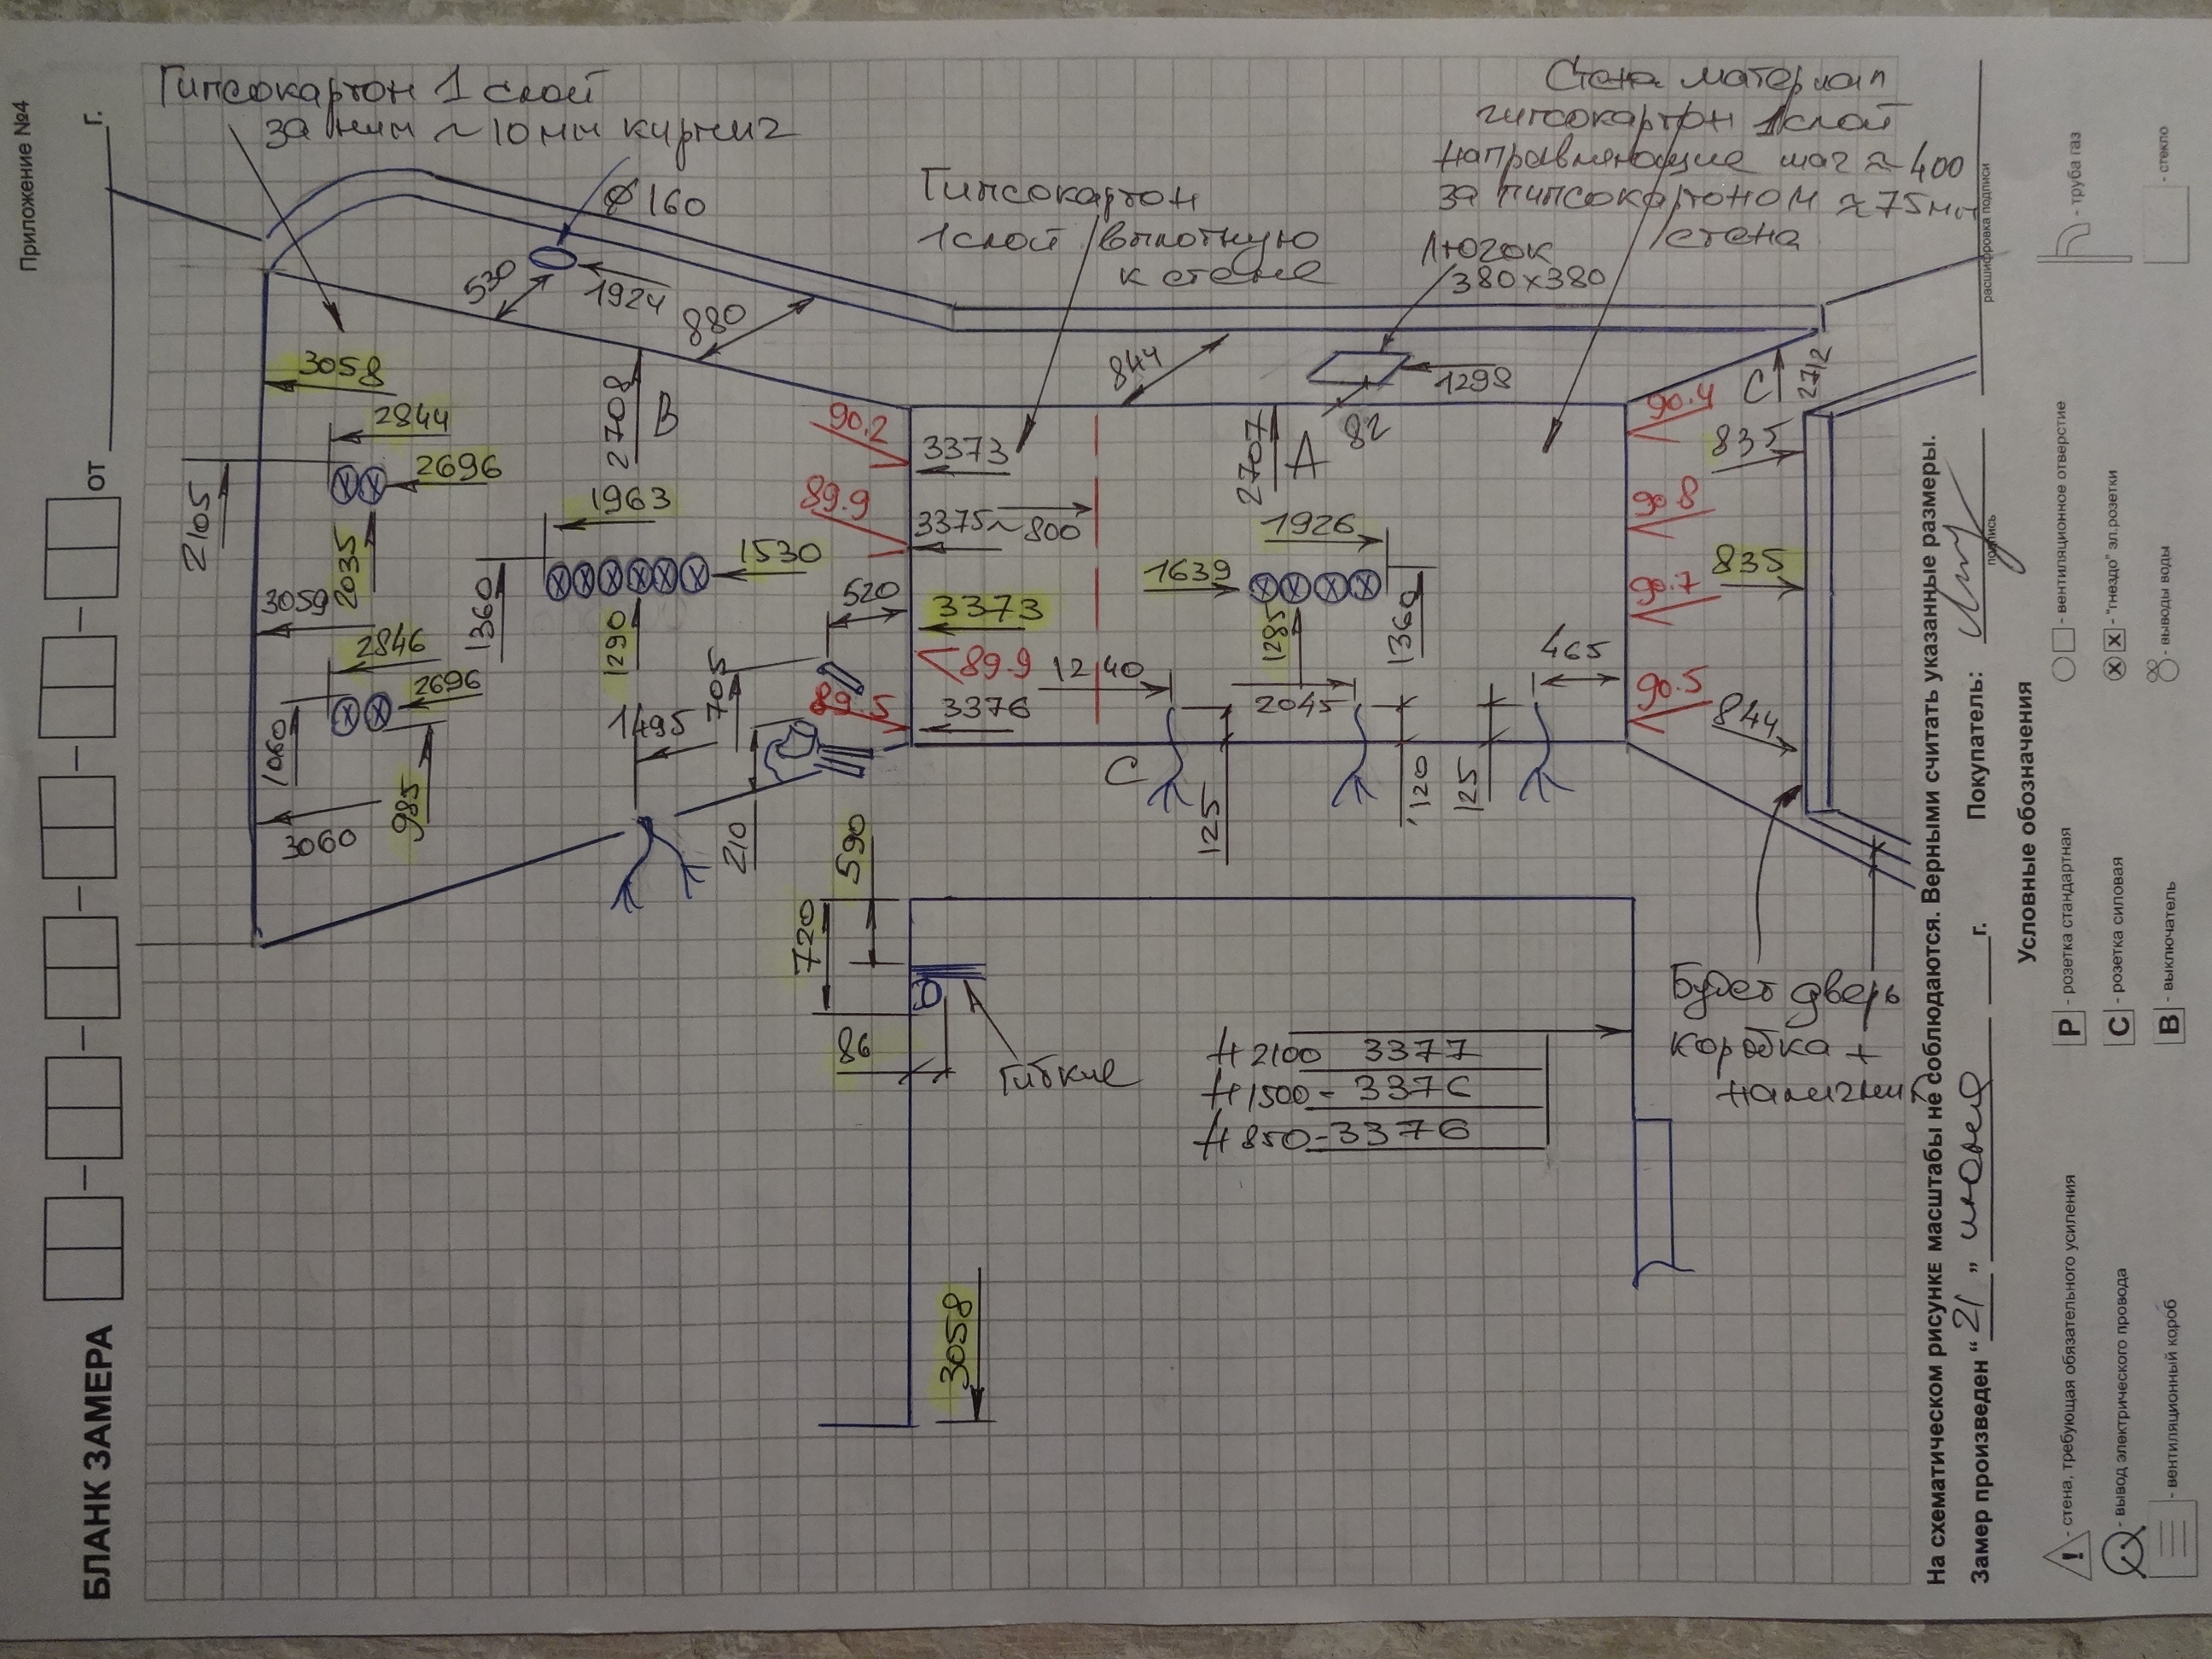 Приложение №4
БЛАНК ЗАМЕРА
от
г.
Гипсокартон 1 слой
за ним ~10мм кирпич
Ø160
530
1924
880
Гипсокартон
1слой вплотную
к стене
Стена материал
гипсокартон 1слой
направляющие шаг ≈ 400
за гипсокартоном ≈75мм
стена
Лючок
380x380
844
1298
82
C
2712
3058
2844
2696
2105
2035
3059
2846
2696
1060
985
3060
2708
B
1963
1530
1360
1290
520
705
1495
210
90.2
89.9
89.9
89.5
3373
3375
~800
3373
3376
2707
A
1926
1639
1285
1360
1240
2045
465
C
125
120
125
90.4
90.8
90.7
90.5
835
835
844
590
720
86
Гибкие
H2100 3377
H1500- 3376
H850-3376
3058
Будет дверь
коробка +
наличник
На схематическом рисунке масштабы не соблюдаются. Верными считать указанные размеры.
Замер произведен “ 21 „ июня г.
Покупатель:
подпись
расшифровка подписи
Условные обозначения
! - стена, требующая обязательного усиления
- вывод электрического провода
- вентиляционный короб
Р - розетка стандартная
С - розетка силовая
В - выключатель
- вентиляционное отверстие
- "гнездо" эл.розетки
- выводы воды
- труба газ
- стекло